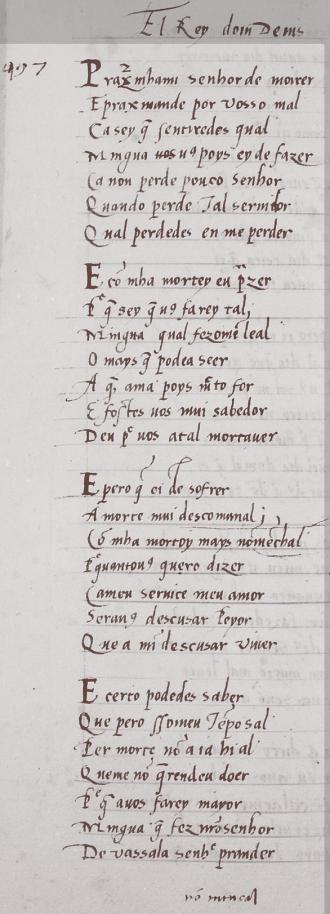 El Rey dom Denis
497
Praz mhami senhor de morrer
E praxmande por vosso mal
Ca sey q̄ sentiredes qual
Mingua vꝰ poys ey de fazer
Ca non perde pouco senhor
Quando perde Tal servidor
Qual perdedes en me perder
E cō mha mortey eu p̄zer
Pᵉ q̄ sey q̄ uꝰ farey tal
Mingua qual fezomē leal
O mays q̄ podea seer
A q̄ ama poys m̄to for
E fostes uos mui sabedor
Deu pᵉ vos atal mortaver
E pero q̄ ei de sofrer
A morte mui descomunal
Cō mha mortoy mays nōmēchal
Pᵉquantouꝰ quero dizer
Cameu service meu amor
Seranꝰ descusar Peyor
Que a mī descusar viver
E certo podedes saber
Que pero ssomeu Tēpo sal
Per morte nō a ia hi al
Queme nō q̄rendeu doer
Pᵉ q̄ auos farey mayor
Mingua q̄ fez nr̄o senhor
De vassala senhᵉ prander